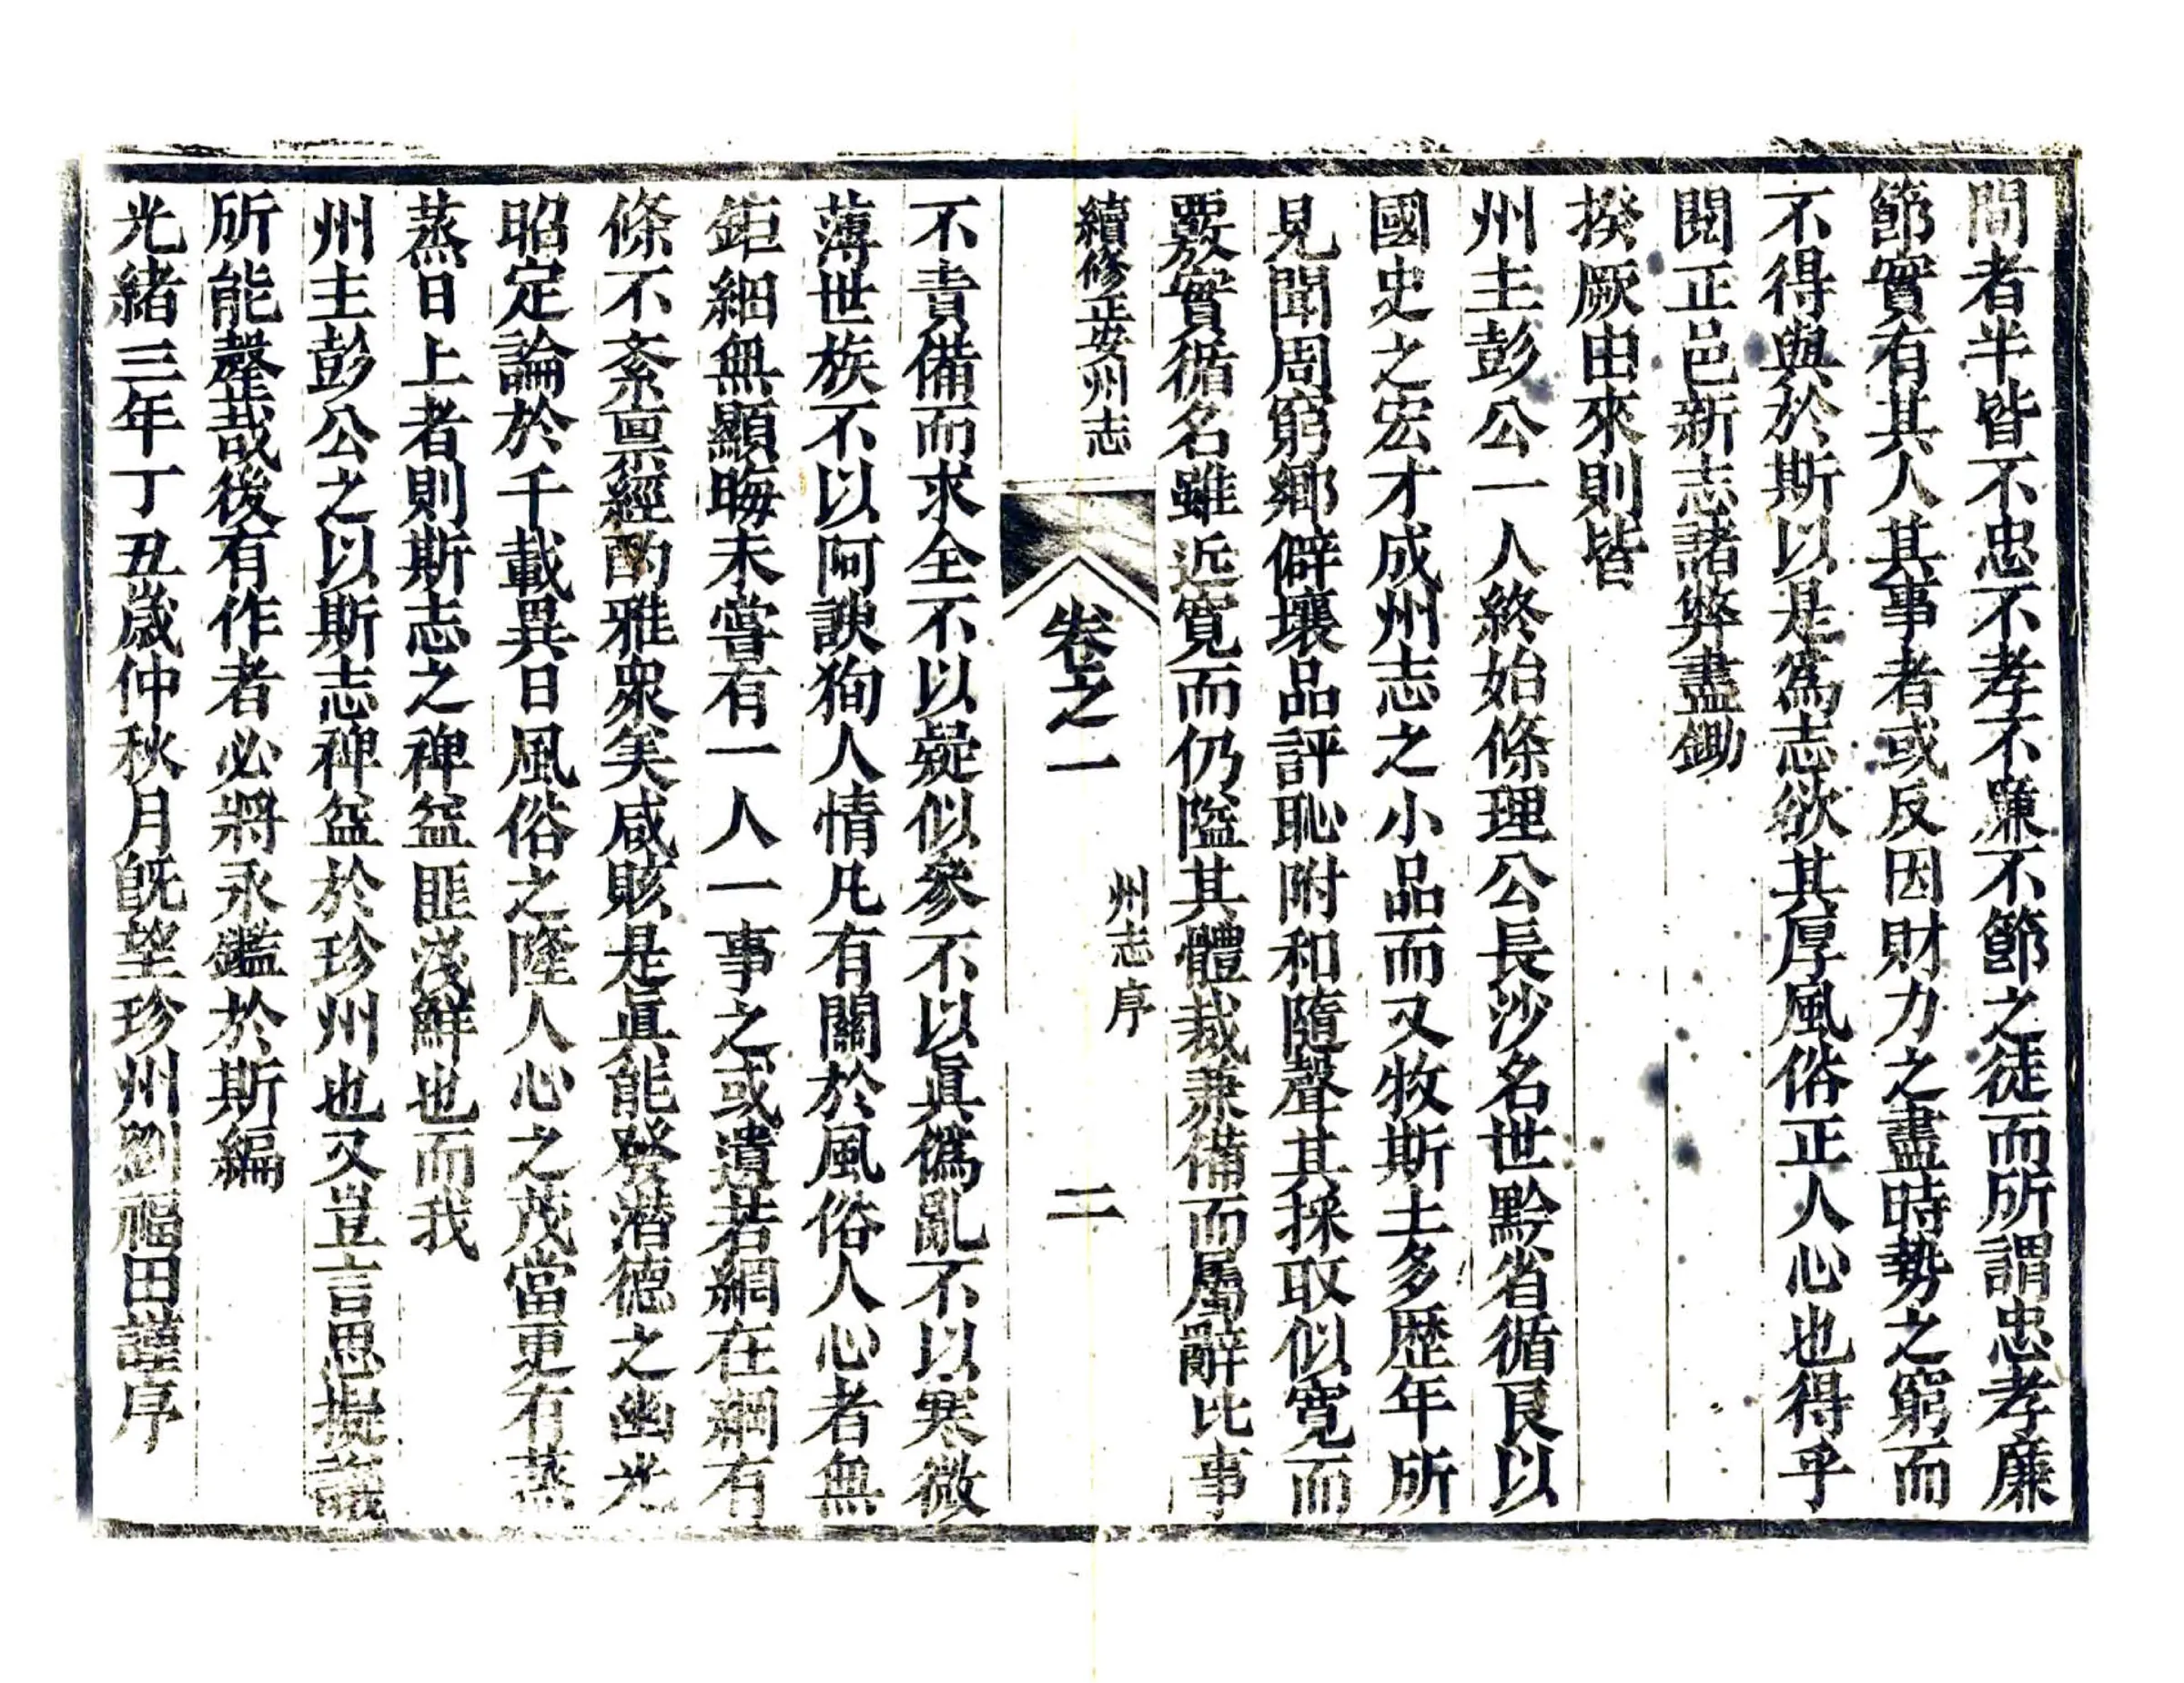 間者半皆不忠不孝不廉不節之徒而所謂忠孝廉
節實有其人其事者或反因財力之盡時勢之窮而
不得與於斯以是為志欲其厚風俗正人心也得乎
閱正邑新志諸弊盡鋤
揆厥由來則皆
州主彭公一人終始條理公長沙名世黔省循良以
國史之宏才成州志之小品而又牧斯土多歷年所
見聞周窮鄉僻壤品評恥附和隨聲其採取似寬而
覈實循名雖近寬而仍隘其體裁兼備而屬辭比事
續修正安州志
卷之一
州志序
二
不責備而求全不以疑似參不以眞僞亂不以寒微
薄世族不以阿諛狥人情凡有關於風俗人心者無
鉅細無顯晦未嘗有一人一事之或遺若網在綱有
條不紊亶經酌雅衆美咸賅是眞能發潛德之幽光
昭定論於千載異日風俗之隆人心之茂當更有蒸
蒸日上者則斯志之裨益匪淺鮮也而我
州主彭公之以斯志裨益於珍州也又豈言思擬議
所能罄哉後有作者必將永鑑於斯編
光緒三年丁丑歲仲秋月旣望珍州劉福田謹序